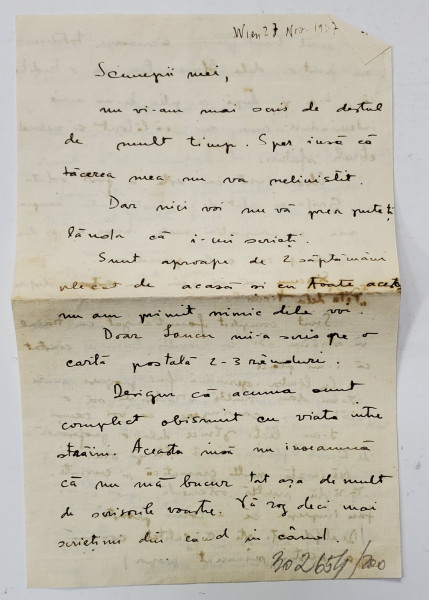 Wien 27 Nov. 1937
Scumpii mei,
nu vi-am mai scris de destul
de mult timp. Sper însă că
tăcerea mea nu va neliniștit.
Dar nici voi nu vă prea puteți
lăuda că i-mi scrieți.
Sunt aproape de 2 săptămâni
plecat de acasă si cu toate acestea
nu am primit nimic dela voi.
Doar Iancu mi-a scris pe o
cartă postală 2-3 rânduri.
Desigur că acuma sunt
complect obisnuit cu viata intre
străini. Aceasta însă nu inseamnă
că nu mă bucur tot așa de mult
de scrisorile voastre. Vă rog deci, mai
scrieți-mi din când in când
302654/200